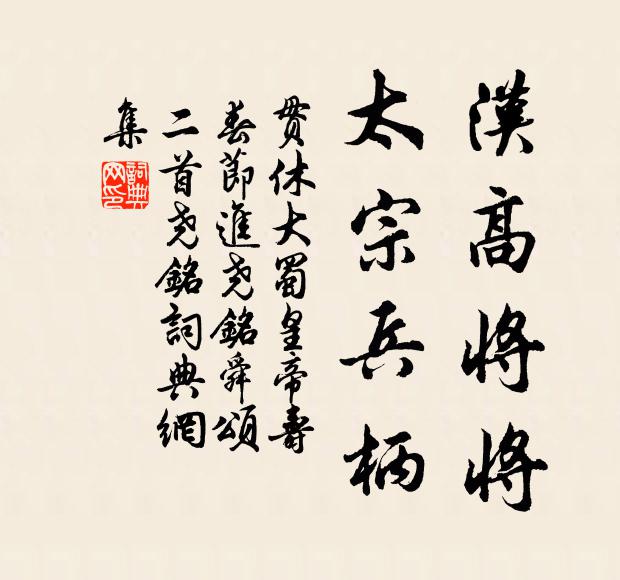 漢高將將
太宗兵柄
貫休大蜀皇帝壽
春節進堯銘舜頌
二首堯銘詞典網
集
詞典
网印